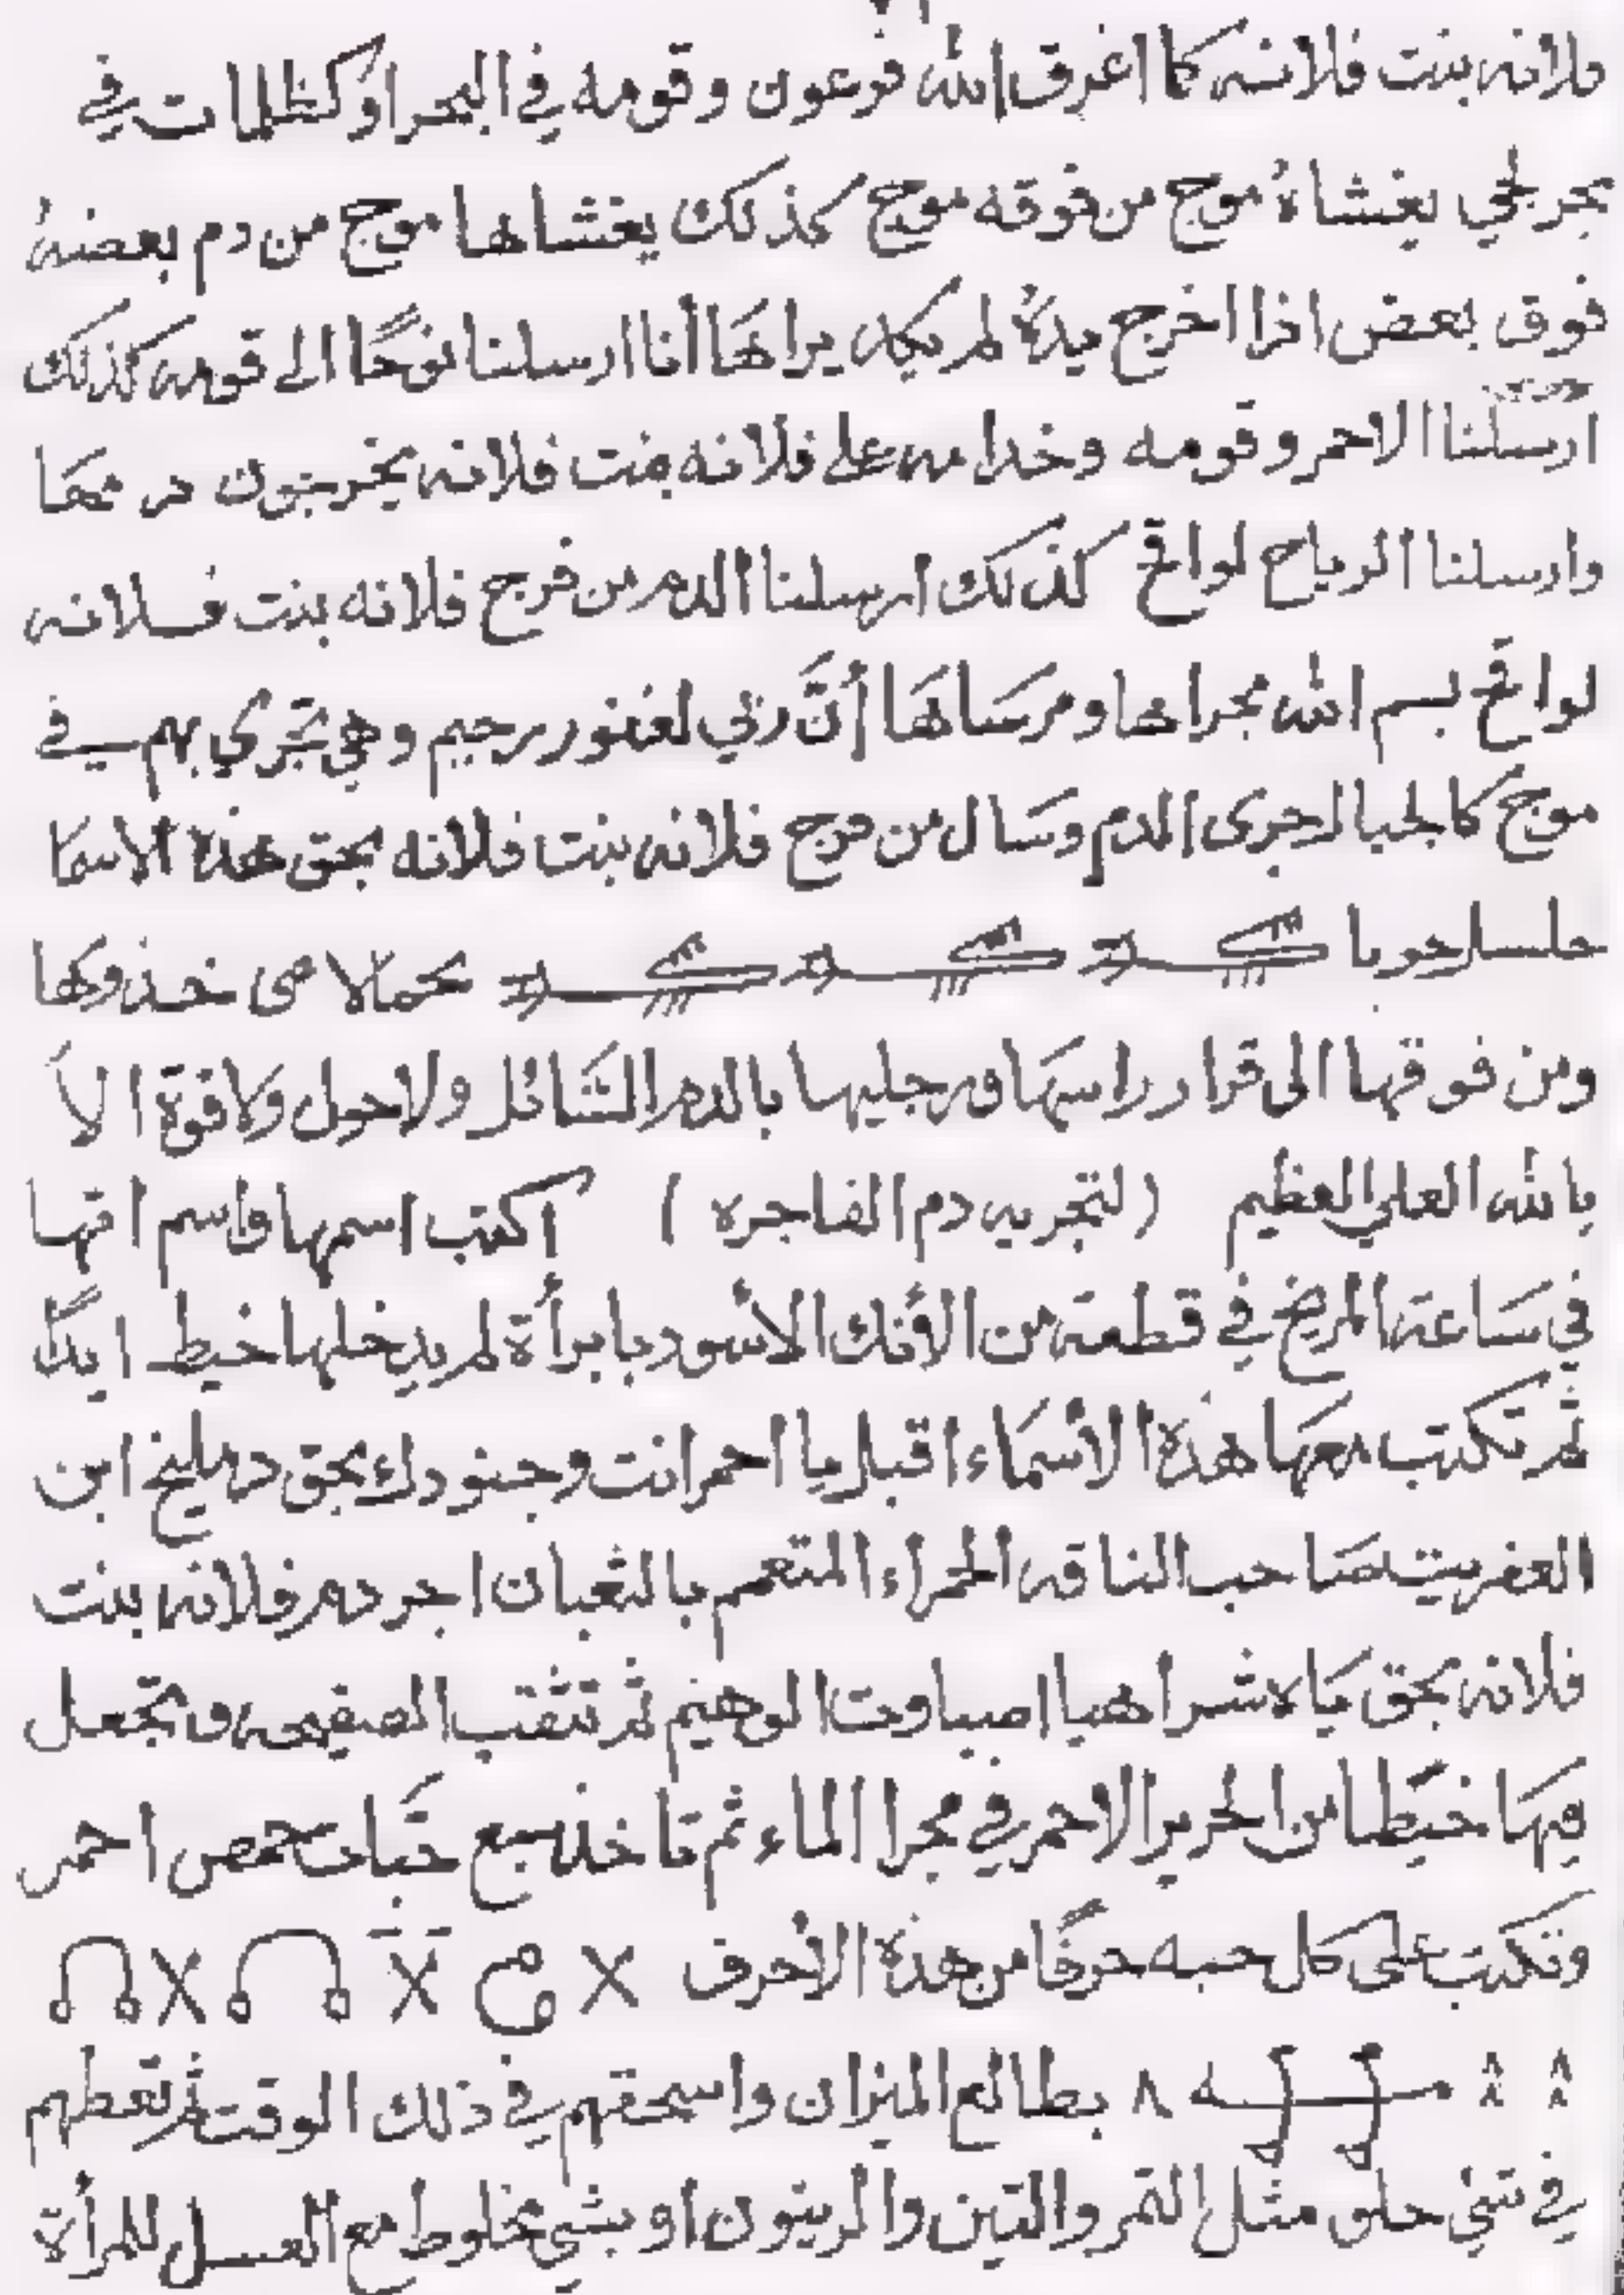 فلانه بنت فلانه كما اغرق الله فرعون وقومه في البحر او كظلمات في
بحر لجي يغشاهُ موج من فوقه موج كذلك يغشاها موج من دم بعضهُ
فوق بعض اذا اخرج يدهُ لم يكد يراهَا أنا ارسلنا نوحًا الى قومه كذلك
ارسلنا الاحمر وقومه وخدامه على فلانه بنت فلانه يخرجون دمهَا
وارسلنا الرياح لواقح كذلك ارسلنا الدم من فرج فلانه بنت فلانه
لواقح بسم الله مجراها ومرسَاهَا أنَّ ربي لغفور رحيم وهي تجري بهم في
موج كالجبال جرى الدم وسَال من فرج فلانه بنت فلانه بحق هذه الاسما
خذوها
ومن فوقها الى قرار راسهَا ورجليها بالدم السَّائل ولا حول ولا قوة الاَ
بالله العلي العظيم (لتجريه دم الفاجره) اكتب اسمها واسم امها
في سَاعة المريخ في قطعة من الأنك الأسود بابرأة لم يدخلها خيط ابدًا
ثم تكتب معهَا هذه الأسمَاء اقبل يا احمر انت وجنودك بحق دمليخ ابن
العفريت صَاحب الناقه الحمراء المتعمم بالثعبان اجر دم فلانه بنت
فلانه بحق يَاه شراهيا اصباوت الوهيم ثم تثقب الصفيحه وتجعل
فيهَا خيطا من الحرير الاحمر في مجرا الماء ثم تاخذ سبع حَبات حمص احمر
وتكتب على كل حبه حرفًا من هذه الأحرف
٨ بطالع الميزان واسحقهم في ذلك الوقت ثم تعطهم
في شيْ حلو مثل التمر والتين والزيتون او بشي مخلوط مع العسل للمرأة